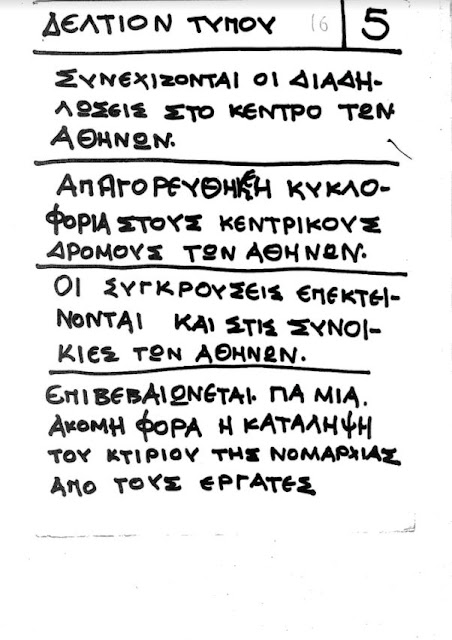 ΔΕΛΤΙΟΝ ΤΥΠΟΥ 16 5
ΣΥΝΕΧΙΖΟΝΤΑΙ ΟΙ ΔΙΑΔΗ-
ΛΩΣΕΙΣ ΣΤΟ ΚΕΝΤΡΟ ΤΩΝ
ΑΘΗΝΩΝ.
ΑΠΑΓΟΡΕΥΘΗΚΕ Η ΚΥΚΛΟ-
ΦΟΡΙΑ ΣΤΟΥΣ ΚΕΝΤΡΙΚΟΥΣ
ΔΡΟΜΟΥΣ ΤΩΝ ΑΘΗΝΩΝ.
ΟΙ ΣΥΓΚΡΟΥΣΕΙΣ ΕΠΕΚΤΕΙ-
ΝΟΝΤΑΙ ΚΑΙ ΣΤΙΣ ΣΥΝΟΙ-
ΚΙΕΣ ΤΩΝ ΑΘΗΝΩΝ.
ΕΠΙΒΕΒΑΙΩΝΕΤΑΙ ΓΙΑ ΜΙΑ
ΑΚΟΜΗ ΦΟΡΑ Η ΚΑΤΑΛΗΨΗ
ΤΟΥ ΚΤΙΡΙΟΥ ΤΗΣ ΝΟΜΑΡΧΙΑΣ
ΑΠΟ ΤΟΥΣ ΕΡΓΑΤΕΣ